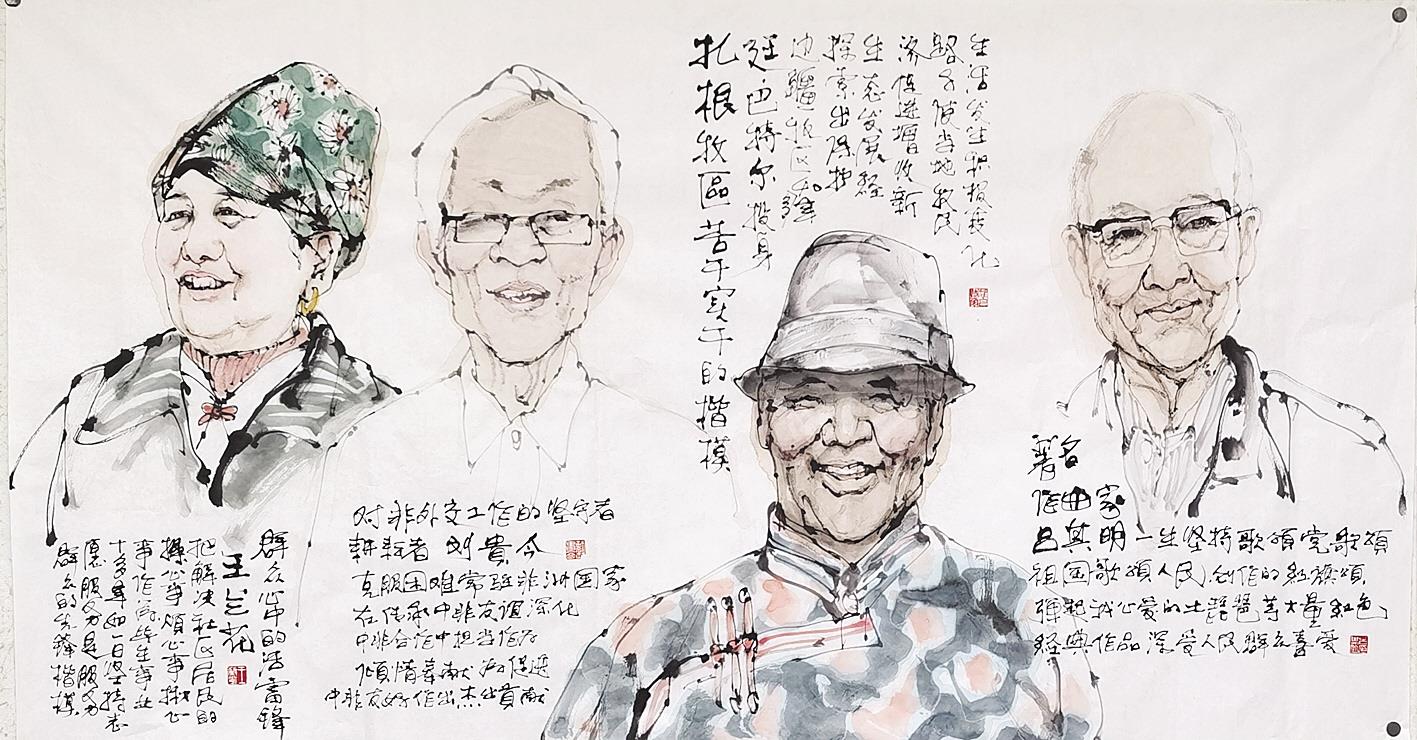 群众心中的活雷锋
王兰花
把解决社区居民的
操心事烦心事揪心
事作为毕生事业
十多年如一日坚持志
愿服务是服务
群众的先锋楷模
对非外交工作的坚守者
耕耘者 刘貴今
克服困难常驻非洲国家
在传承中非友谊深化
中非合作中担当作为
倾情奉献为促进
中非友好作出杰出貢献
扎根牧區苦干实干的楷模
廷·巴特尔投身
边疆牧区
探索出保护
生态发展经
济促进增收新
路子使当地牧民
生活发生积极变化
著名
作曲家
吕其明一生坚持歌頌党歌頌
祖国歌頌人民创作的红旗頌
弹起我心爱的土琵琶等大量红色
经典作品深受人民群众喜爱